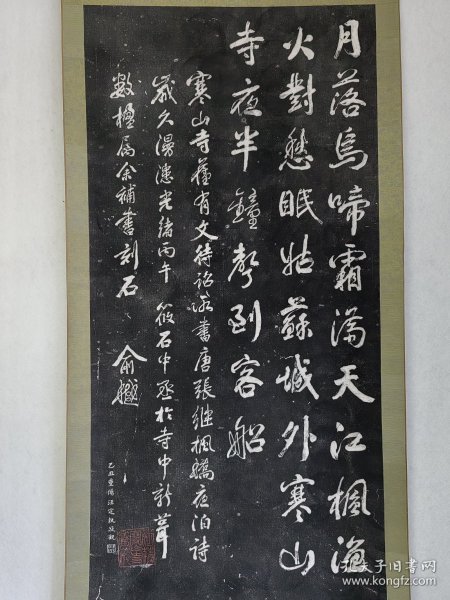 月落烏啼霜滿天江楓漁
火對愁眠姑蘇城外寒山
寺夜半鐘聲到客船
寒山寺舊有文待詔所書唐張继楓橋夜泊詩
歲久漫漶光緒丙午筱石中丞於寺中新葺
數楹属余補書刻石
俞樾
孔夫子旧书网
www.kongfz.com